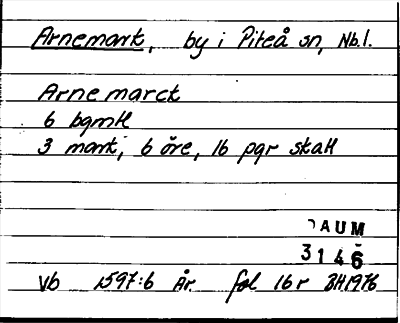 Arnemark, by i Piteå sn, Nb.l.
Arnemarck
6 bgmtl
3 mark; 6 öre, 16 pgr skatt
DAUM
3146
Vb 1597:6 År fol 16r BH1976